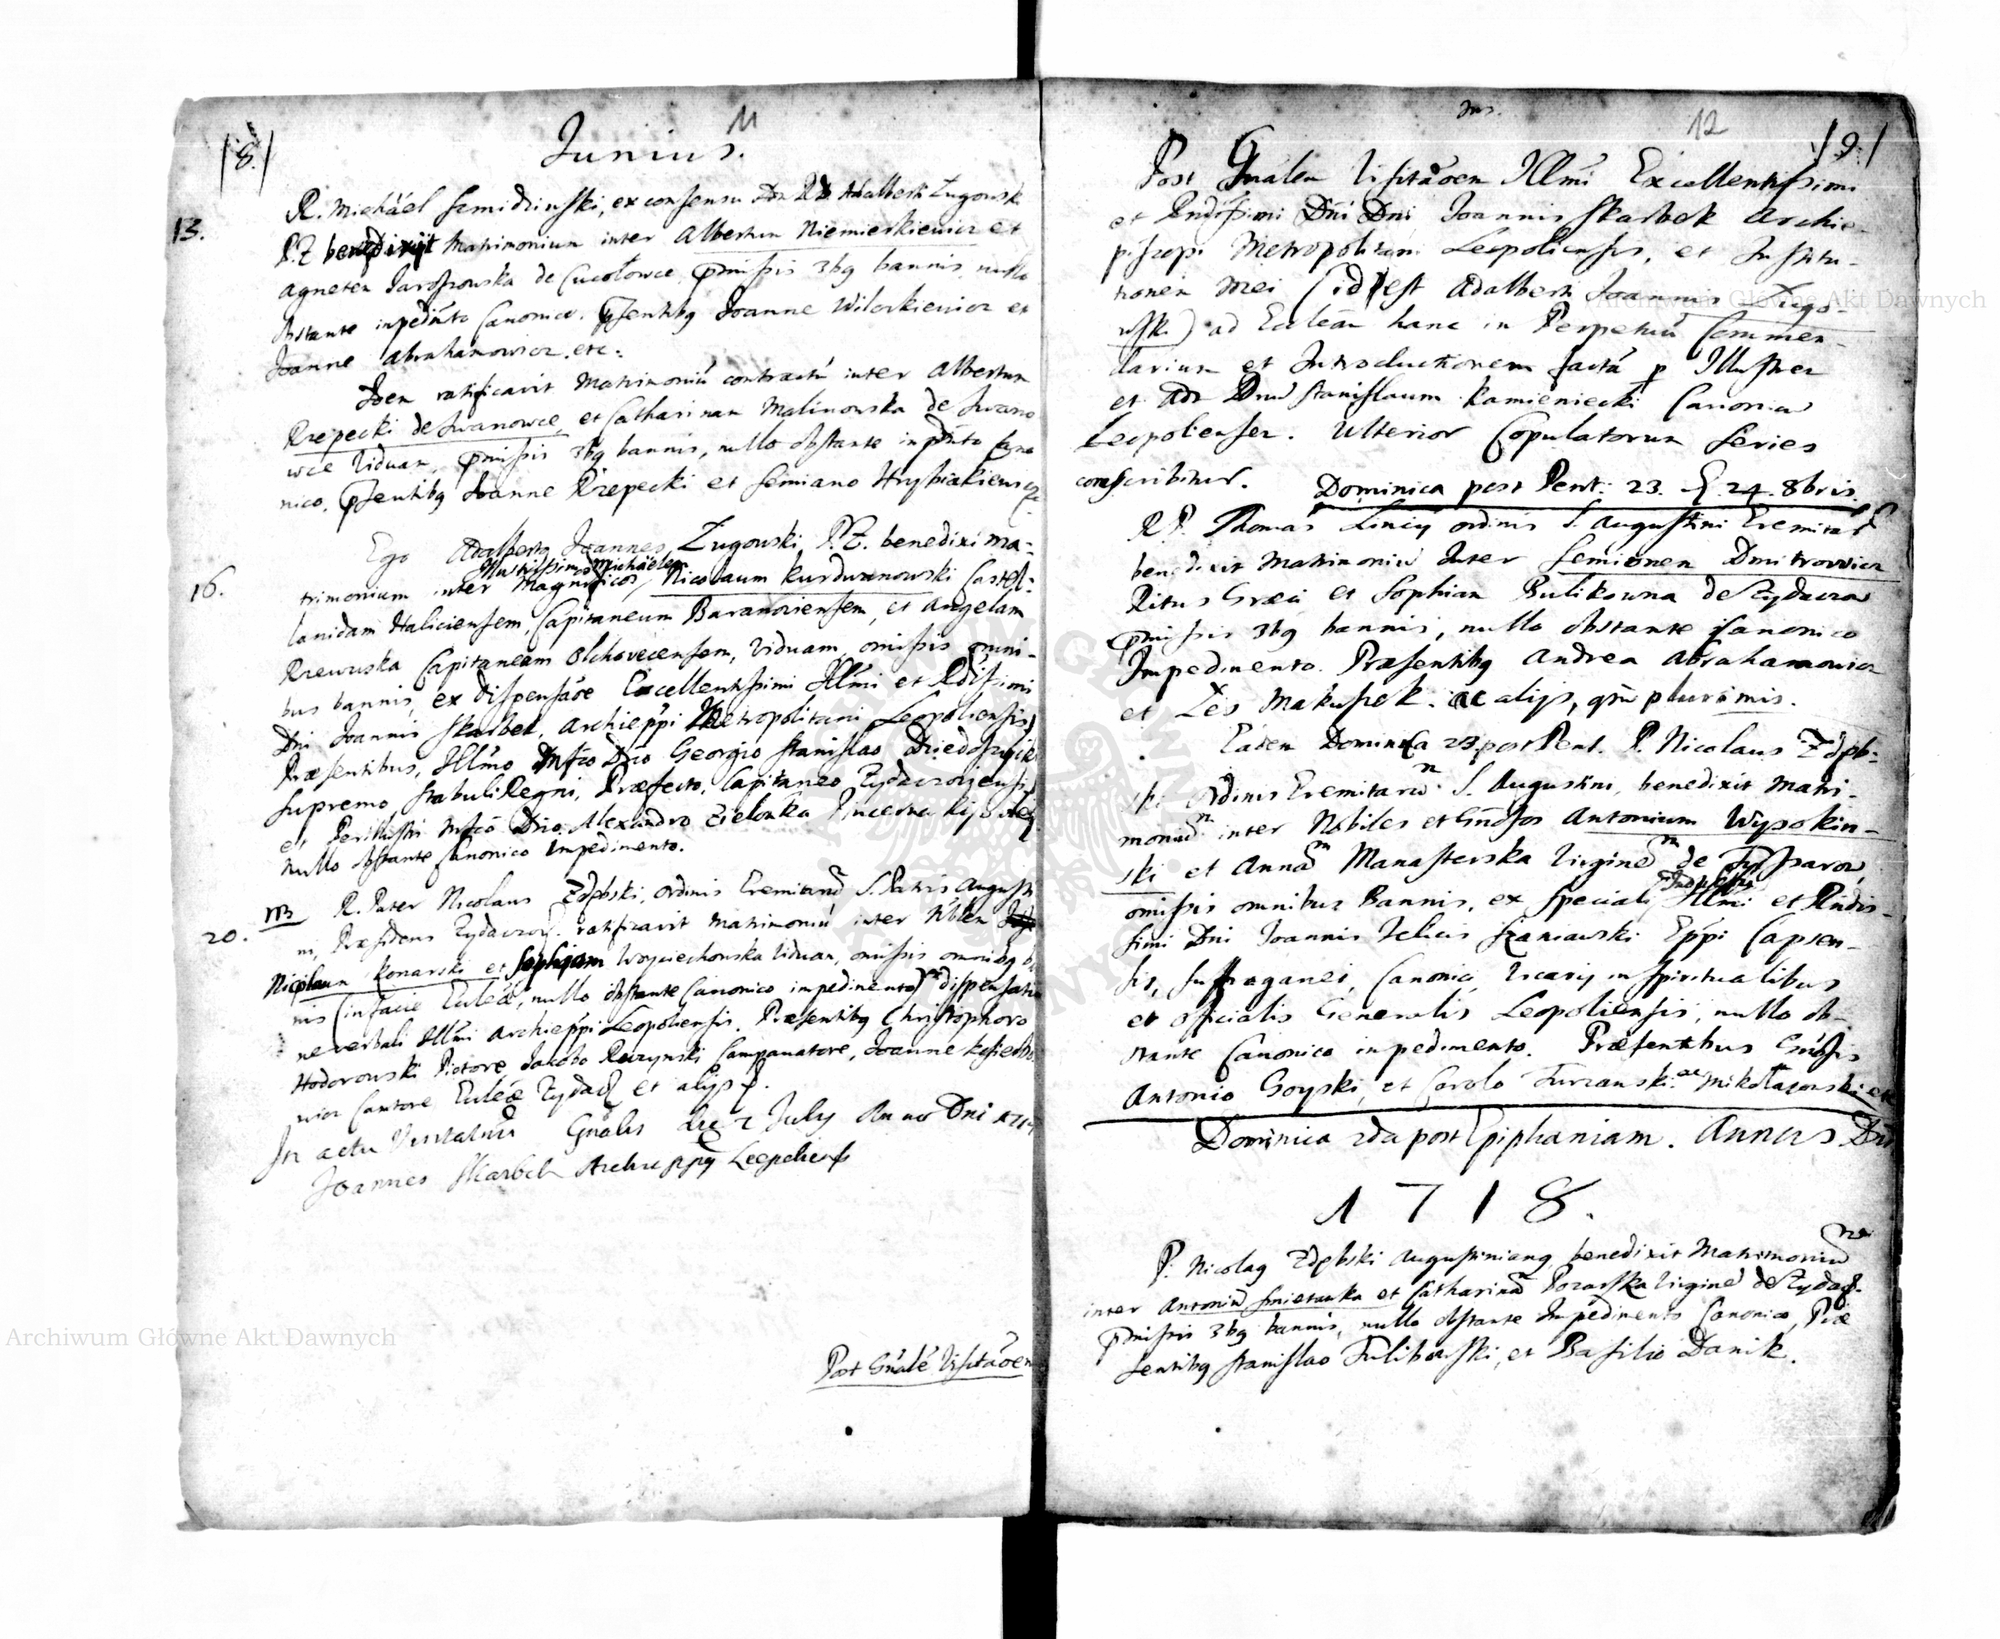 /8/
11
Junius.
13.
R. Michael Semidzinski, ex consensu Adalberti Zugowski
P.Z. benedixit Matrimonium inter Albertum Niemierkiewicz et
Agneten Jaroszowska de Cucołowce, pmissis 3bg bannis, nullo
obstante inpedinto Canonico. psentibg Joanne Wilozkiewicz et
Joanne Abrahamowicz. etc:
Idem ratificavit Matrimoniū contractū inter Albertum
Rzepecki de Iwanowce, et Catharinam Malinowska de Iwano
wce Viduam, pmissis 3bg bannis, nullo obstante inpdinto Cano
nico, psentibg Joanne Rzepecki et Semiano Hrysiakiewicz
16.
Ego Adalbertg Joannes Zugowski, P.Z. benedixi ma-
Illustrissimos Michaëlem
trimonium inter Magnificos, Nicolaum Kurdwanowski Castel-
lanidam Haliciensem, Capitaneum Baranoviensem, et Angelam
Rzewuska Capitaneam Olchoveciensem, Viduam, omissis omni-
bus bannis, ex dispensāoe Excellentissimi Illmi et Rdissimi
Dni Joannis Skarbek, Archieppi Metropolitani Leopoliensis,
Præsentibus, Illmo Dno Georgio Stanislao Dziedoszycki
Supremo Stabuli Regni, Præfecto, Capitaneo Zydaczoviensi,
et Perillustri Mfco Dno Alexandro Zielonka Pincerna
nullo obstante Canonico Impedimento.
20.
NB
R. Pater Nicolaus Zdębski, Ordinis Eremitarū S. Patris Augusti
ni, Præsidens Zydaczov. ratificavit Matrimoniū inter Nblem
Nicolaum Konarski et Sophiam Woyciechowska Viduam, omissis omnibg ban
nis (in facie Eccleæ, nullo obstante Canonico inpedimento) dispensatio
ne verbali Illmi Archieppi Leopoliensis. Præsentibg Christophoro
Hodorowski Pictore, Jakobo Ruzynski Campanatore, Joanne
wicz Cantore Eccleæ Zydacz et alijs.
In actu Visitatnis Gnalis die 2 July Anno Dni 1717
Joannes Skarbek Archieppg Leopoliensis
Post Gnalē Visitāoem
12
/9/
Post Gnalem Visitāoem Illmi Excellentissimi
et Rndissimi Dni Dni Joannis Skarbek Archie-
piscopi Metropolitani Leopoliensis, et Institu-
tionem Mei (id est Adalberti Joannis Zugo-
wski) ad Eccleām hanc in Perpetuū Commen-
darium et Introductionem factā p Illustrem
et Adr Dnm Stanislaum Kamieniecki Canonicū
Leopoliensem. Ulterior Copulatorum Series
conscribitur.
Dominica post Pent: 23. 24. 8bris.
R P. Thomas Lincy ordinis S. Augustini Eremitarū
benedixit Matrimoniū Inter Semionem Dmitrowicz
Ritus Græci et Sophiam Bulikowna de Zydaczow
pmissis 3bg bannis, nullo obstante Canonico
Impedimento. Præsentibg Andrea Abrahamowicz
et Leś Makuszek. ac alijs, qm plurimis.
Eadem Dominica 23 post Pent. P. Nicolaus Zdęb-
ski Ordinis Eremitarū S. Augustini, benedixit Matri-
moniū inter Nobiles et Gnosos Antonium Wysokin-
ski et Annā Manasterska Virginē de
omissis omnibus Bannis, ex speciali Indulto Illmi et Rndis-
simi Dni Joannis Felicis Szaniawski Eppi Capsen-
sis, Suffraganei, Canonici, Vicarij in spiritualibus
et Officialis Generalis Leopoliensis, nullo ob-
stante Canonico inpedimento. Præsentibus Gnosis
Antonio Goyski, et Carolo Turzanski. ac Mikołaiowski etc
Dominica 2da post Epiphaniam. Annus Dni
1718.
P. Nicolag Zdębski Augustiniang benedixit Matrimoniū
inter Antoniū Smietanka et Catharinā Pozarska Virginē de Zydacz.
pmissis 3bg bannis, nullo obstante Impedimento Canonico, Præ
sentibg Stanislao Tulibowski, et Basilio Danik.
Archiwum Główne Akt Dawnych
Archiwum Główne Akt Dawnych